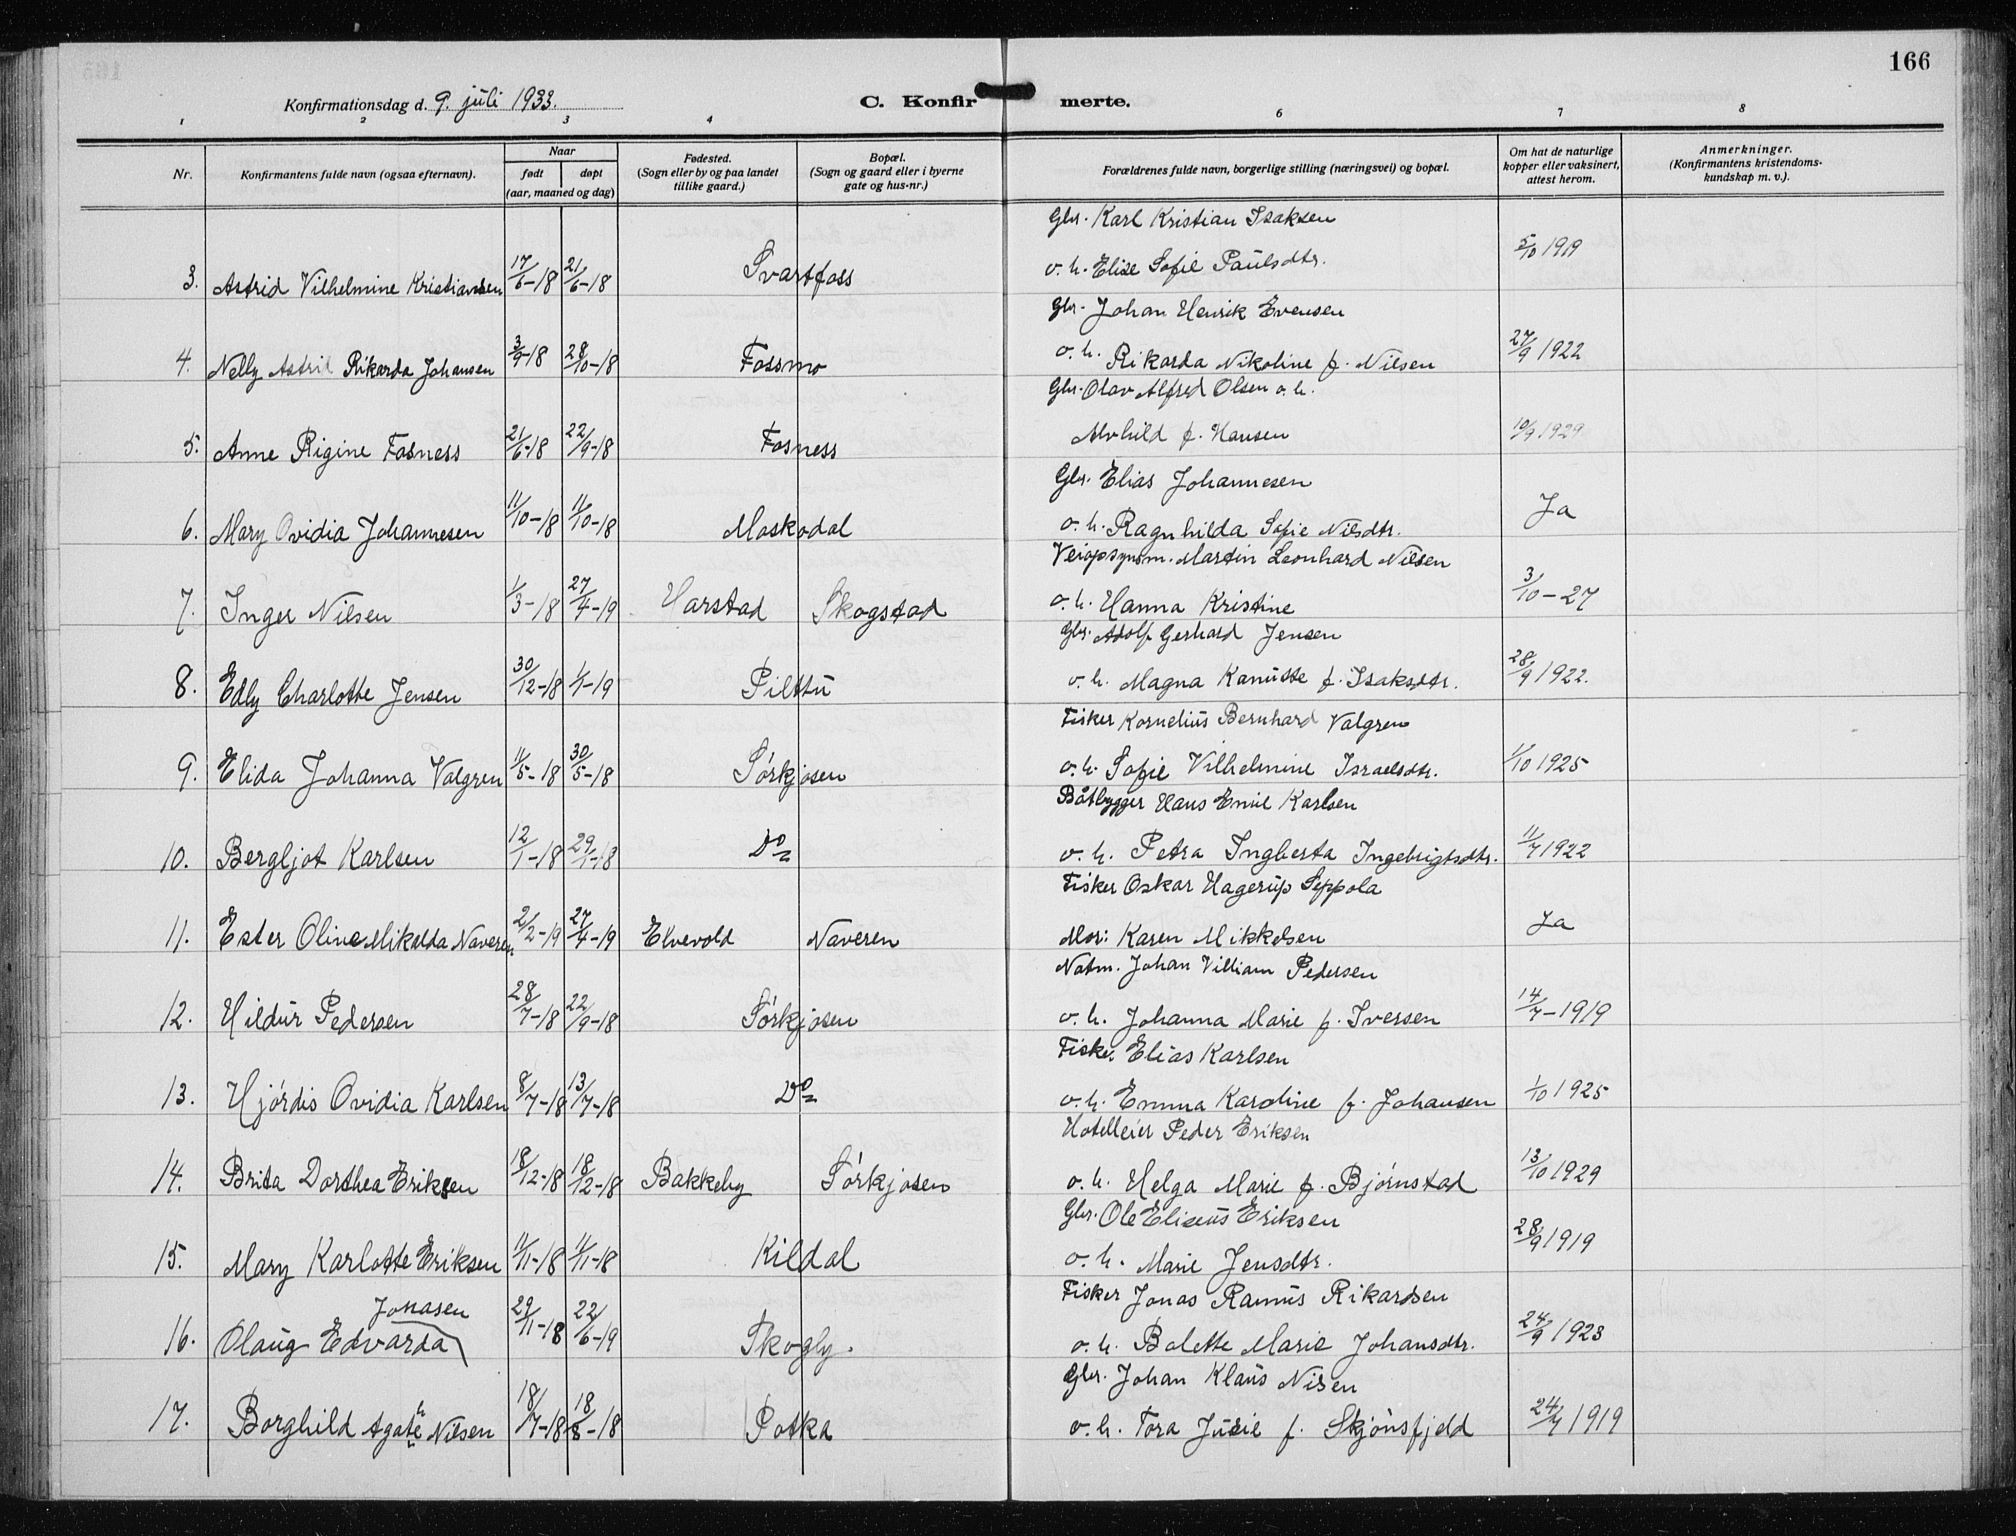 166
Konfirmationsdag d. 9. juli 1933.
C. Konfirmerte.
1 2 3 4 6 7 8
Nr.
Konfirmantens fulde navn (ogsaa efternavn).
Naar
født døpt
(aar, maaned og dag)
Fødested.
(Sogn eller by og paa landet
tillike gaard.)
Bopæl.
(Sogn og gaard eller i byerne
gate og hus-nr.)
Forældrenes fulde navn, borgerlige stilling (næringsvei) og bopæl.
Om hat de naturlige
kopper eller vaksinert,
attest herom.
Anmerkninger.
(Konfirmantens kristendoms-
kundskap m. v.).
Gbr. Karl Kristian Isaksen
3. Astrid Vilhelmine Kristiansen 17/6-18 21/6-18 Svartfoss o. h. Elise Sofie Paulsdtr. 5/10 1919
Gbr. Johan Henrik Evensen
4. Nelly Astrid Rikarda Johansen 3/9-18 28/10-18 Fossmo o. h. Rikarda Nikoline f. Nilsen 27/9 1922
Gbr. Olav Alfred Olsen o. h.
5. Anne Rigine Fosness 21/6-18 22/9-18 Fosness Alvhild f. Hansen 10/9 1929
Gbr. Elias Johannesen
6. Mary Ovidia Johannesen 11/10-18 11/10-18 Moskodal o. h. Ragnhilda Sofie Nilsdtr. Ja
Veiopsynsm. Martin Leonhard Nilsen
7. Inger Nilsen 1/3-18 27/4-19 Harstad Skogstad o. h. Hanna Kristine 3/10-27
Gbr. Adolf Gerhard Jensen
8. Edly Charlotte Jensen 30/12-18 1/1-19 Pilttu o. h. Magna Kanutte f. Isaksdtr. 28/9 1922.
Fisker Kornelius Bernhard Valgren
9. Elida Johanna Valgren 11/5-18 30/5-18 Sørkjosen o. h. Sofie Vilhelmine Israelsdtr. 1/10 1925
Båtbygger Hans Emil Karlsen
10. Bergljot Karlsen 12/1-18 29/1-18 Do o. h. Petra Ingberta Ingebrigtsdtr. 11/7 1922
Fisker Oskar Hagerup Seppola
11. Ester Oline Mikalda Naveren 2/2-19 27/4-19 Elvevold Naveren Mor: Karen Mikkelsen Ja
Notm. Johan Villiam Pedersen
12. Hildur Pedersen 28/7-18 22/9-18 Sørkjosen o. h. Johanna Marie f. Iversen 14/7-1919
Fisker Elias Karlsen
13. Hjørdis Ovidia Karlsen 8/7-18 13/7-18 Do o. h. Emma Karoline f. Johansen 1/10 1925
Hotelleier Peder Eriksen
14. Brita Dorthea Eriksen 18/12-18 18/12-18 Bakkeby Sørkjosen o. h. Helga Marie f. Bjørnstad 13/10 1929
Gbr. Ole Eliseus Eriksen
15. Mary Karlotte Eriksen 11/11-18 11/11-18 Kildal o. h. Marie Jensdtr. 28/9 1919
Fisker Jonas Ramus Rikardsen
Jonasen
16. Olaug Edvarda 29/11-18 22/6-19 Skogly. o. h. Bolette Marie Johansdtr. 24/9 1923
Gbr. Johan Klaus Nilsen
17. Borghild Agathe Nilsen 18/7-18 18/8-18 Potka o. h. Tora Jusie f. Skjønsfjeld 24/7 1919